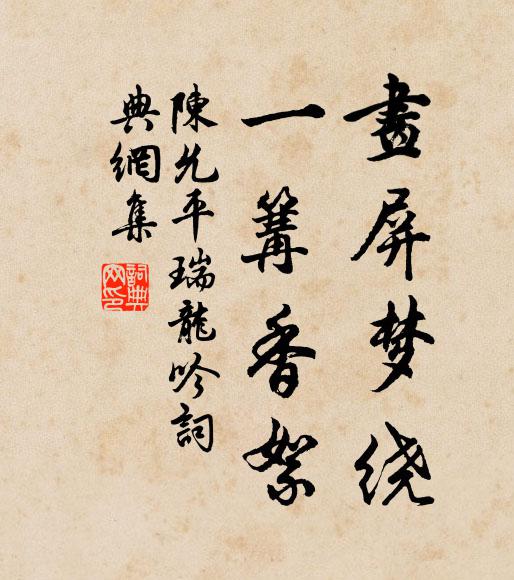 畫屏梦绕
一篝香絮
陳允平瑞龍吟詞
典網集
詞典网印